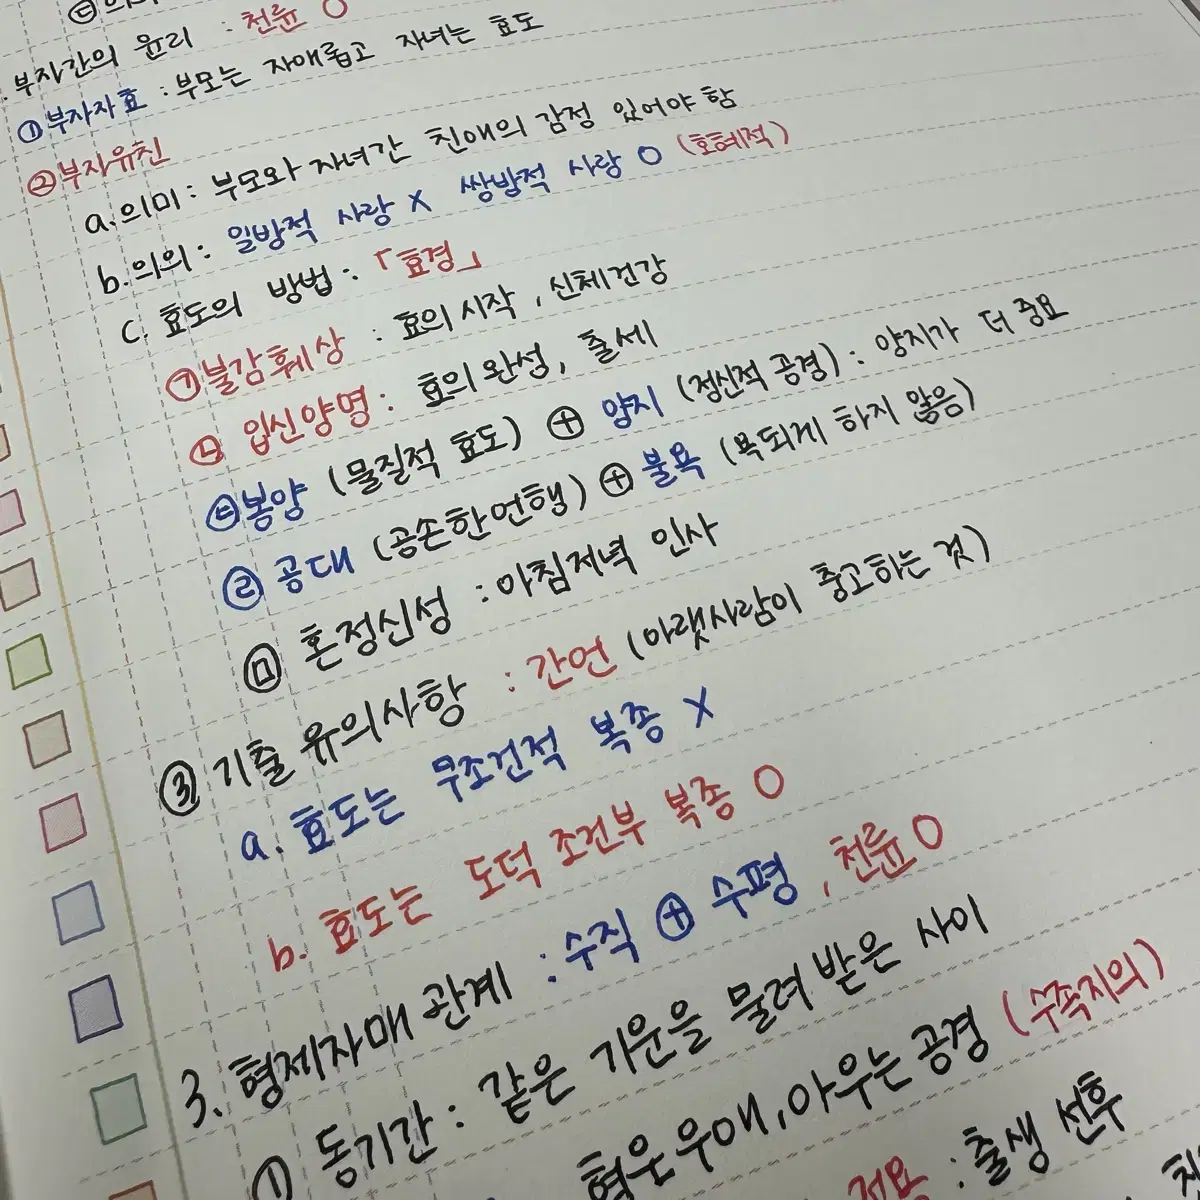 ㉢의
부자간의 윤리 : 천륜 O
① 부자자효 : 부모는 자애롭고 자녀는 효도
② 부자유친
a. 의미 : 부모와 자녀간 친애의 감정 있어야 함
b. 의의 : 일방적 사랑 X 쌍방적 사랑 O (호혜적)
C. 효도의 방법 : 「효경」
㉠ 불감훼상 : 효의 시작, 신체건강
㉡ 입신양명 : 효의 완성, 출세
㉢ 봉양 (물질적 효도) ⊕ 양지 (정신적 공경) : 양지가 더 중요
㉣ 공대 (공손한 언행) ⊕ 불욕 (욕되게 하지 않음)
㉤ 혼정신성 : 아침저녁 인사
③ 기출 유의사항 : 간언 (아랫사람이 충고하는 것)
a. 효도는 무조건적 복종 X
b. 효도는 도덕 조건부 복종 O
3. 형제자매 관계 : 수직 ⊕ 수평, 천륜 O
① 동기간 : 같은 기운을 물려 받은 사이
형은 우애, 아우는 공경 (수족지의)
: 출생 선후